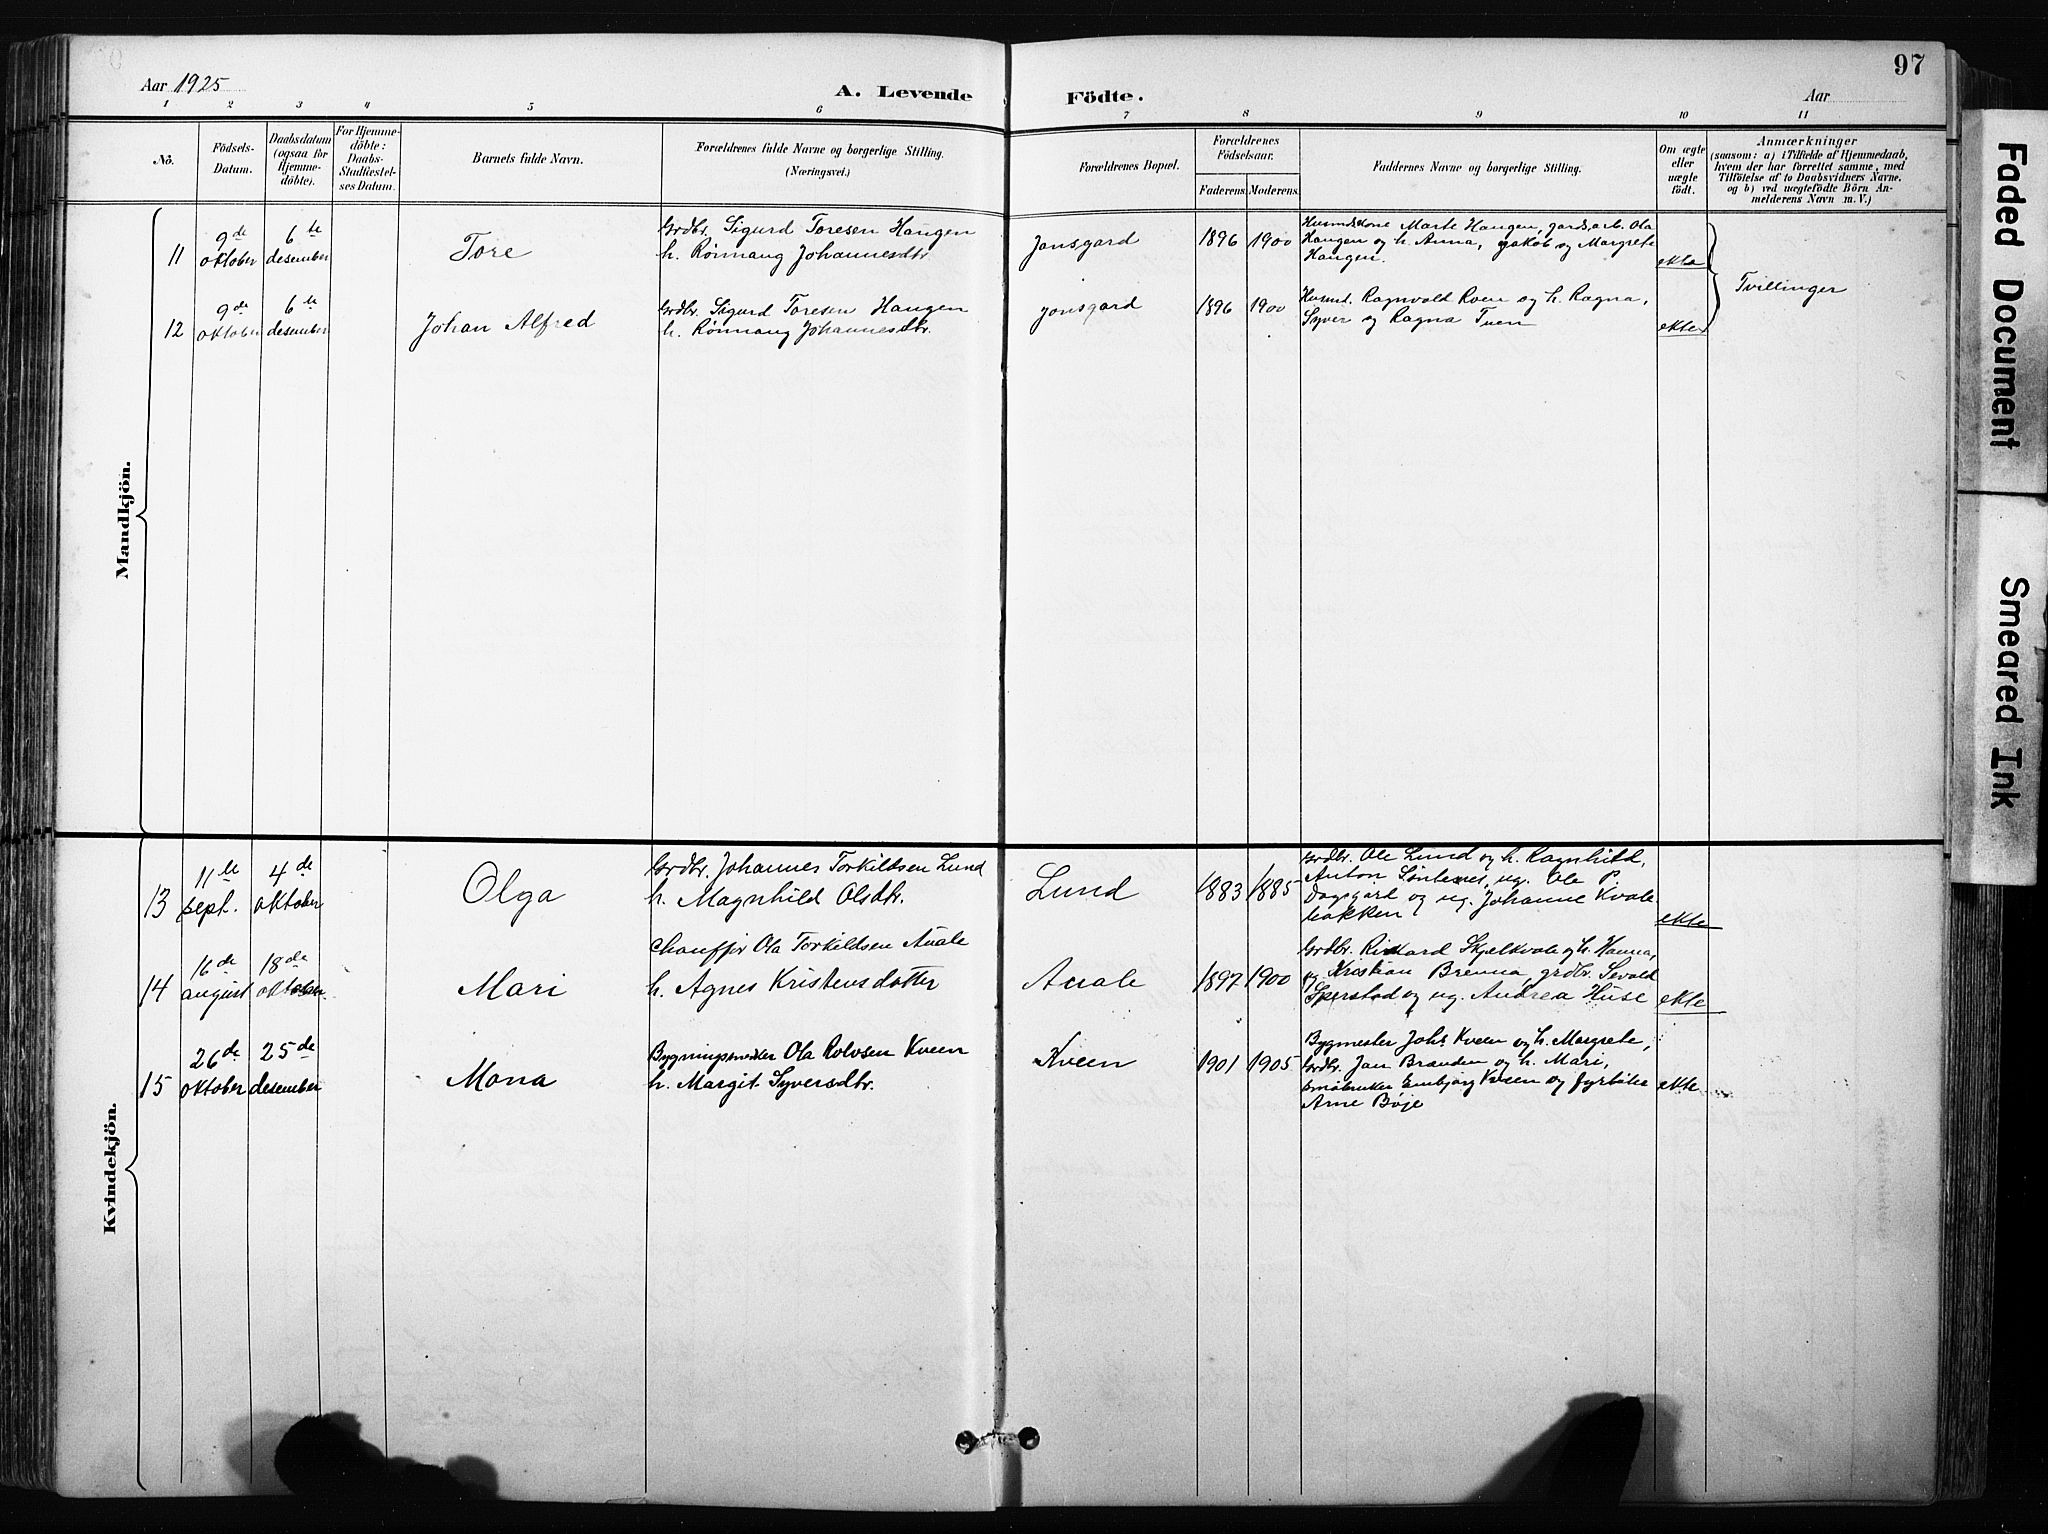 97
Aar 1925
A. Levende Födte.
Aar
1 2 3 4 5 6 7 8 9 10 11
No.
Födsels-
Datum.
Daabsdatum
(ogsaa for
Hjemme-
döbte).
For Hjemme-
döbte:
Daabs-
Stadfæstel-
ses Datum.
Barnets fulde Navn.
Forældrenes fulde Navne og borgerlige Stilling.
(Næringsvei.)
Forældrenes Bopæl.
Forældrenes
Födselsaar.
Faderens.
Moderens.
Faddernes Navne og borgerlige Stilling.
Om ægte
eller
uægte
födt.
Anmærkninger
(saasom: a) i Tilfælde af Hjemmedaab,
hvem der har forrettet samme, med
Tilföielse af to Daabsvidners Navne,
og b) ved uægtefödte Börn An-
melderens Navn m. V.)
Mandkjön.
11
9de
oktober
6te
desember
Tore
Grdbr. Sigurd Toresen Haugen
h. Rønnaug Johannesdtr
Jonsgard
1896 1900
Husmdskone Marte Haugen, gards.arb. Ola
Haugen og h. Anna, Jakob og Margrete
Haugen.
ekte
Tvillinger
12
9de
oktober
6te
desember
Johan Alfred
Grdbr. Sigurd Toresen Haugen
h. Rønnaug Johannesdtr.
Jonsgard
1896 1900
Husmd. Ragnvald Roen og h. Ragna,
Syver og Ragna Tuen
ekte
Kvindekjön.
13
11te
sept.
4de
oktober
Olga
Grdbr. Johannes Torkildsen Lund
h. Magnhild Olsdtr.
Lund
1883 1885
Grdbr. Ole Lund og h. Ragnhild,
Anton ug. Ole P.
Dagsgard og ug. Johanne Kvale-
bakken
ekte
14
16de
august
18de
oktober
Mari
Chauffør Ola Torkildsen Auale
h. Agnes Kristensdotter
Auale
1897 1900
Grdbr. Rikard Skjelkvale og h. Hanna,
Kristian Brenna, grdbr. Sevald
Sperstad og ug. Andrea Huse
ekte
15
26de
oktober
25de
desember
Mona
Bygningsmester Ola Rolvsen Kveen
h. Margit Syversdtr.
Kveen
1901 1905
Bygmester Johs Kveen og h. Margrete,
Grdbr. Jan Branden og h. Mari,
småbruker Embjørg Kveen og fyrbøter
Arne Bøje
ekte
Faded Document
Smeared Ink